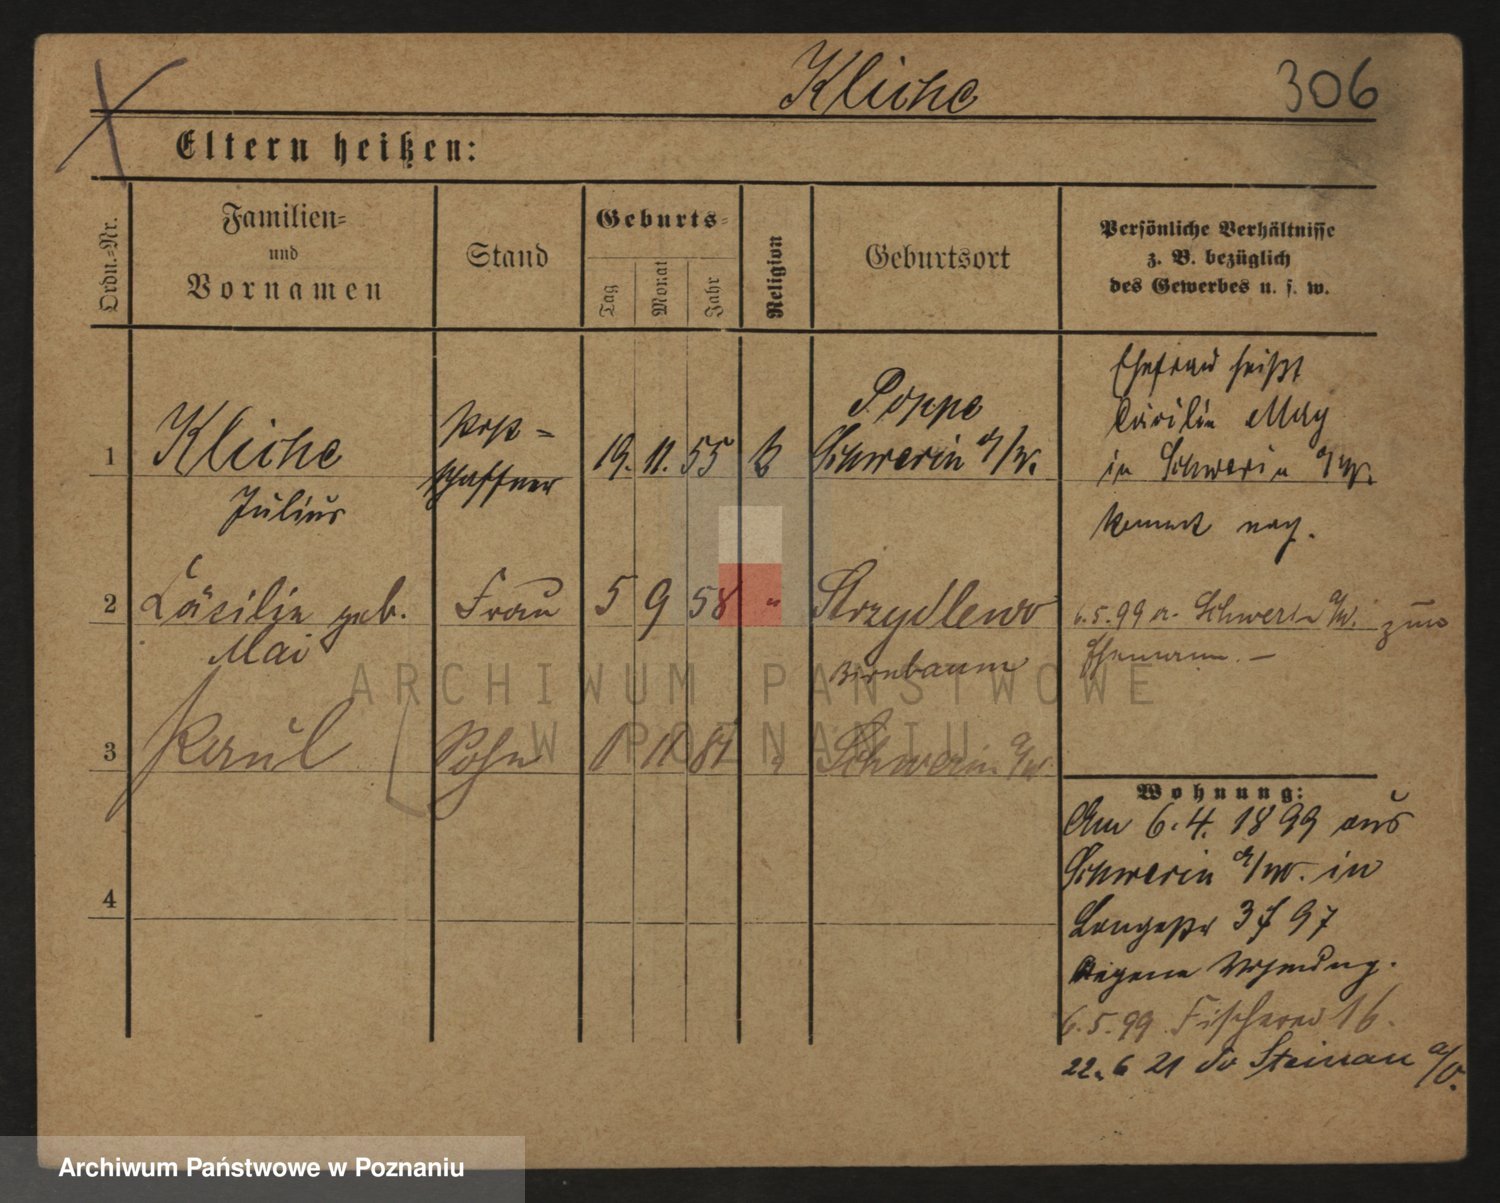 Kliche 306
Eltern heißen:
Ordn.-Nr.
Familien-
und
Vornamen
Stand
Geburts-
Tag
Monat
Jahr
Religion
Geburtsort
Persönliche Verhältnisse
z. B. bezüglich
des Gewerbes u. s. w.
1 Kliche
Julius
Post-
schaffner
19. 11. 55
Poppe
Schwerin a/W.
Ehefrau heißt
Cäcilie May
in Schwerin a/W.
kommt nach.
2 Cäcilie geb.
Mai
Frau 5 9 58 "
Strzydlewo
Birnbaum
6.5.99 a. Schwerin a/W. zum
Ehemann. —
3 Paul Sohn 1 11 81 " Schwerin a/W.
4
Wohnung:
Am 6.4.1899 aus
Schwerin a/W. in
Langestr 3 97
Eigene Wohnung.
6.5.99 Fischerei 16.
22.6 21 Steinau a/O.
ARCHIWUM PAŃSTWOWE
W POZNANIU
Archiwum Państwowe w Poznaniu